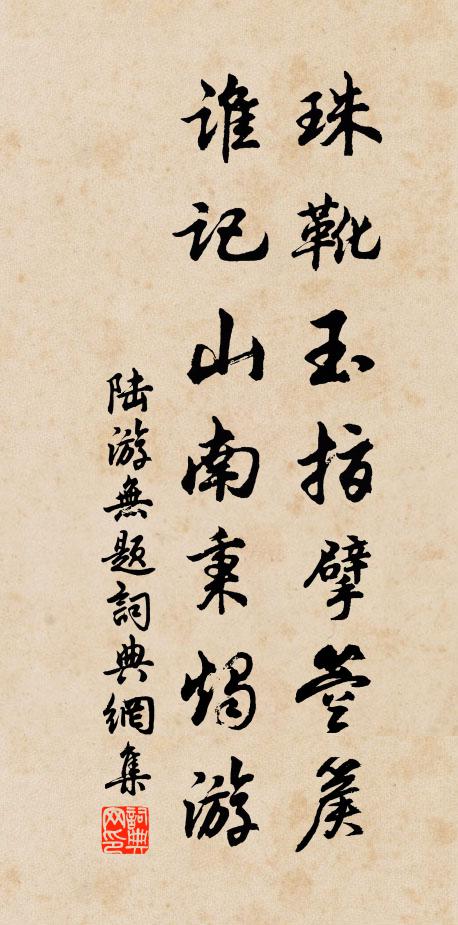 珠靴玉指擘箜篌
誰記山南秉燭游
陆游無题詞典網集
詞典网印